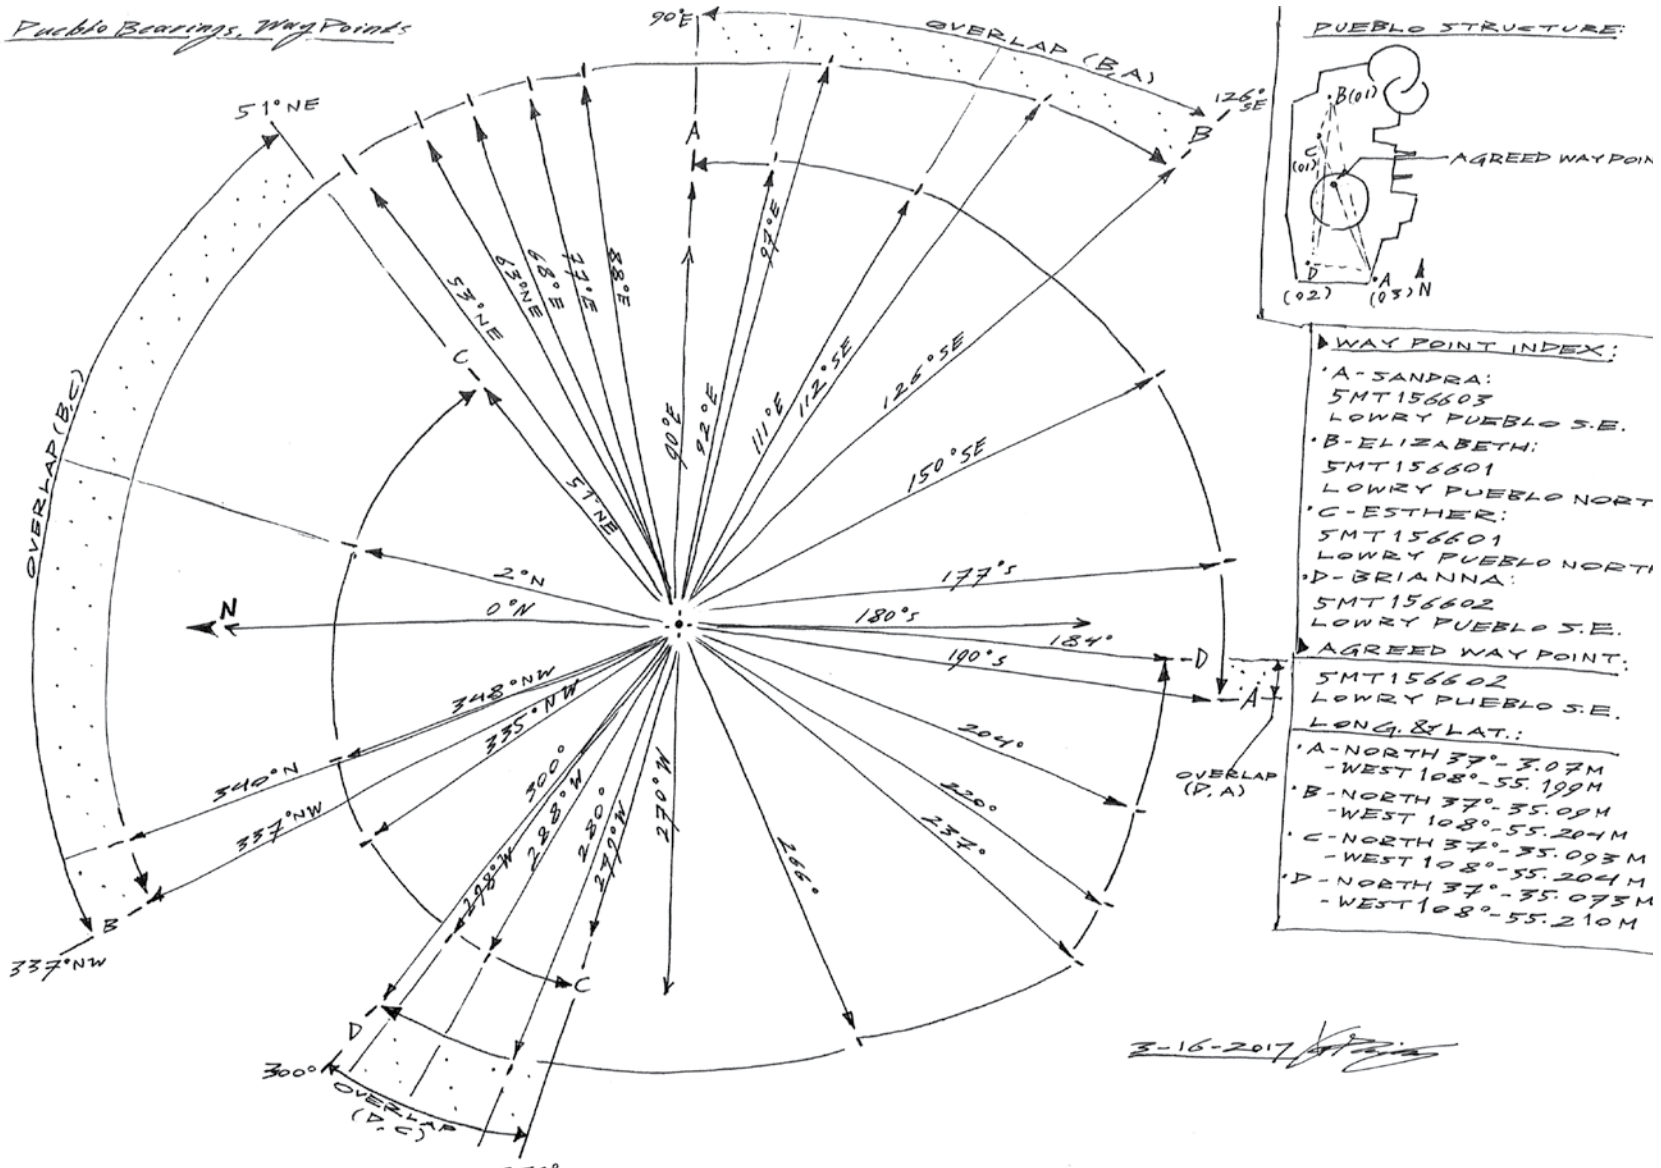 Pueblo Bearings, Way Points
90°E
OVERLAP (B,A)
126°
SE
B
A
51° NE
OVERLAP (B,C)
C
53° NE
63° NE
68° E
77° E
88° E
51° NE
90° E
92° E
97° E
111° E
112° SE
126° SE
150° SE
177° S
180° S
184°
D
190° S
A
OVERLAP
(D,A)
204°
220°
237°
266°
270° W
280°
288° W
300°
298° W
C
D
300°
OVERLAP
(D,C)
2° N
0° N
N
348° NW
335° NW
340° N
337° NW
B
337° NW
3-16-2017
PUEBLO STRUCTURE:
B(01)
C
(01)
AGREED WAY POIN
D
(02)
A
(03)
N
WAY POINT INDEX:
·A-SANDRA:
5MT156603
LOWRY PUEBLO S.E.
·B-ELIZABETH:
5MT156601
LOWRY PUEBLO NORT
·C-ESTHER:
5MT156601
LOWRY PUEBLO NORTH
·D-BRIANNA:
5MT156602
LOWRY PUEBLO S.E.
AGREED WAY POINT:
5MT156602
LOWRY PUEBLO S.E.
LONG. & LAT.:
·A-NORTH 37°-3.07M
-WEST 108°-55.199M
·B-NORTH 37°-35.09M
-WEST 108°-55.204M
·C-NORTH 37°-35.093M
-WEST 108°-55.204M
·D-NORTH 37°-35.073M
-WEST 108°-55.210M